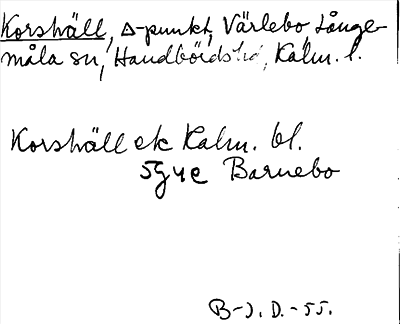 Korshäll, Δ-punkt, Värlebo, Långe-
måla sn, Handbörds hd, Kalm. l.
Korshäll ek Kalm. bl.
5g4e Barnebo
B-J. D. -55.